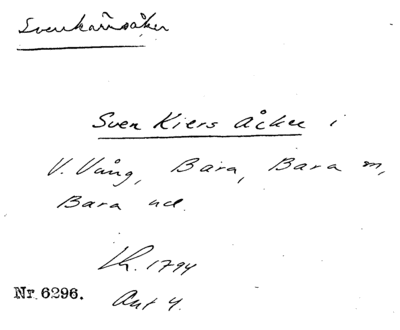 Svenkärrsåker
Sven Kiers Åcker i
V. Vång, Bara, Bara sn,
Bara hd.
Lh. 1794
Nr. 6296.
Akt 4.